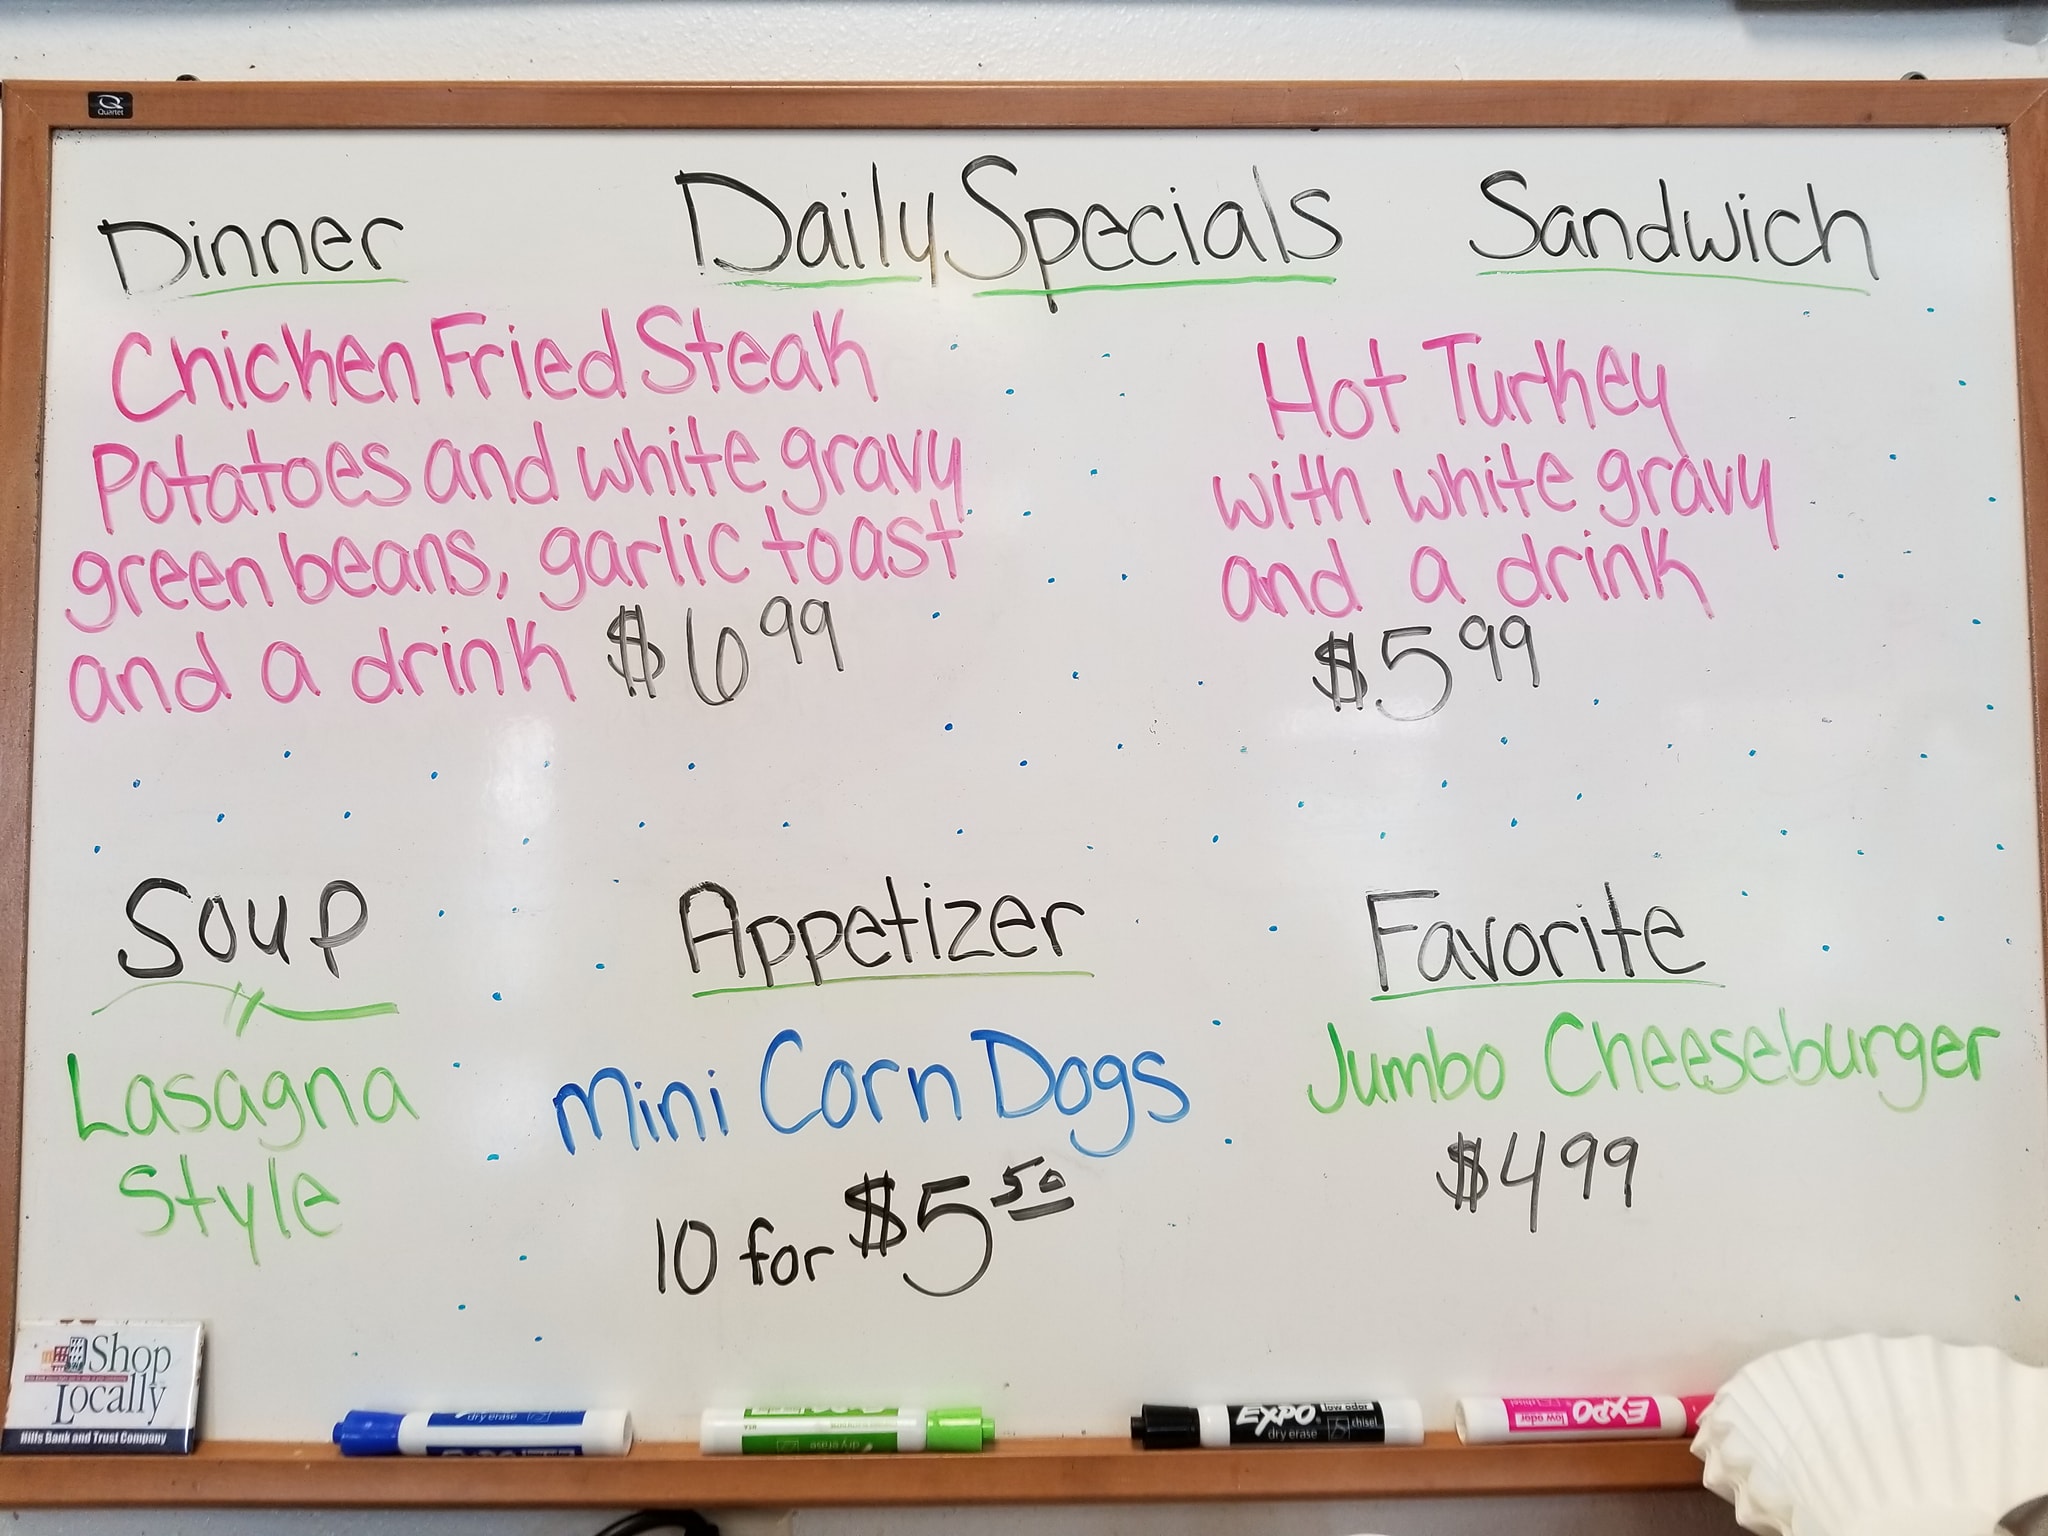 Q
Quartet
Daily Specials
Dinner
Chicken Fried Steak
Potatoes and white gravy
green beans, garlic toast
and a drink $6 99
Sandwich
Hot Turkey
with white gravy
and a drink
$5 99
Soup
Lasagna
Style
Appetizer
Mini Corn Dogs
10 for $5 50
Favorite
Jumbo Cheeseburger
$4 99
Shop
Locally
Hills Bank and Trust Company
dry erase
EXPO
dry erase
EXPO
low odor
dry erase
chisel
EXPO
low odor
chisel